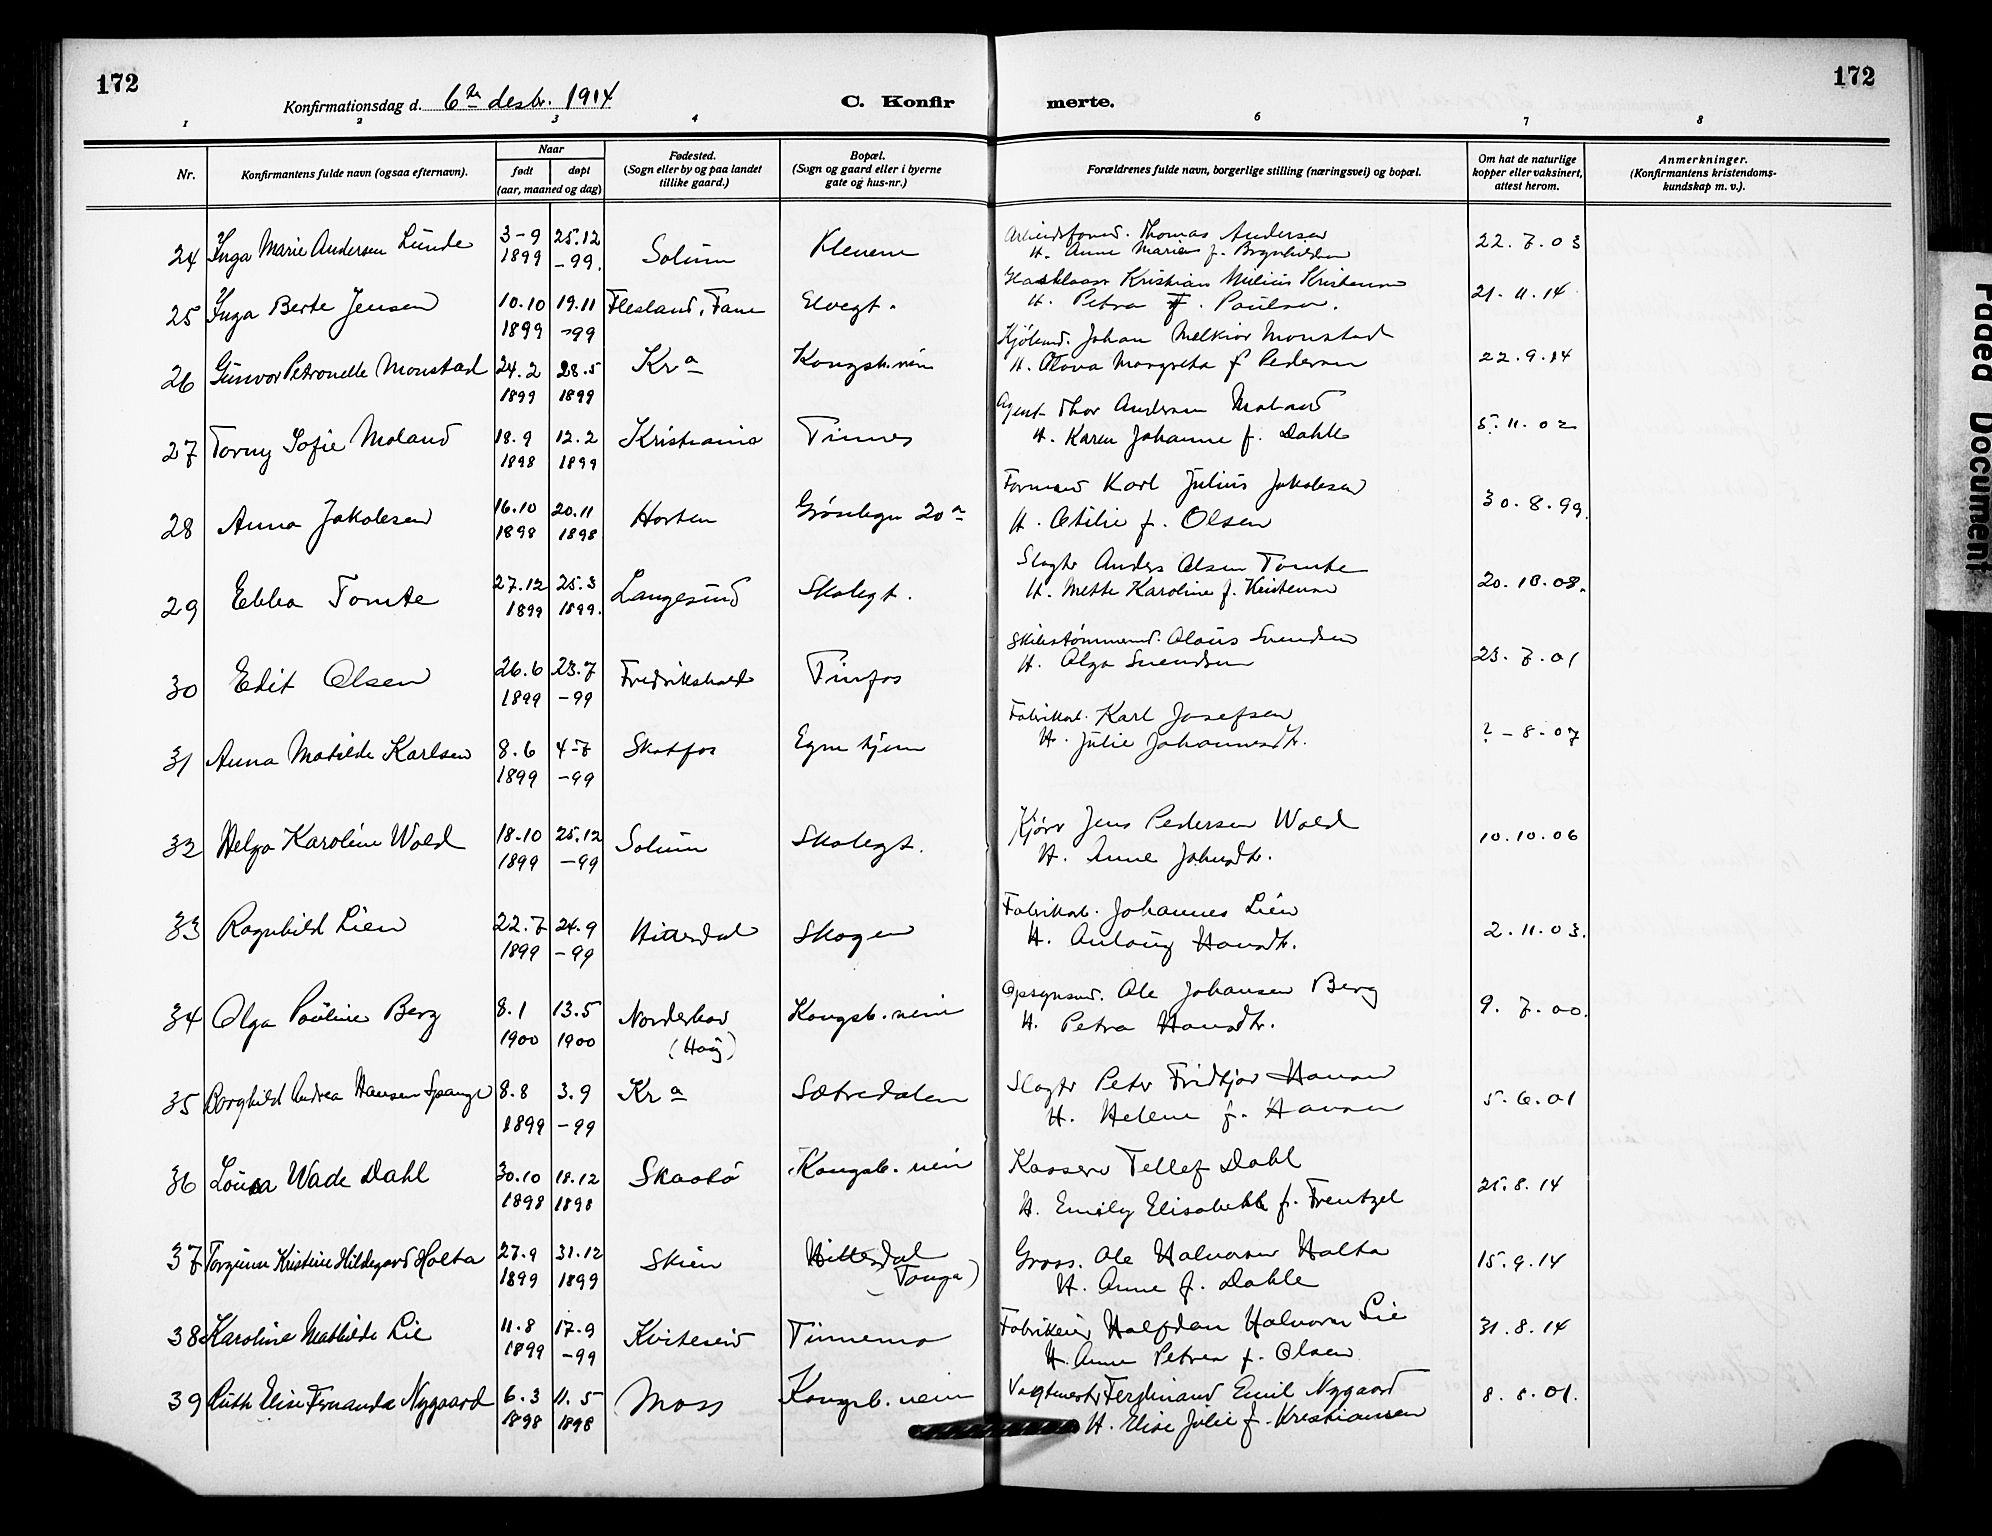 172
Konfirmationsdag d. 6te desbr. 1914
C. Konfir
merte.
172
1 2 3 4 6 7 8
Nr.
Konfirmantens fulde navn (ogsaa efternavn).
Naar
født døpt
(aar, maaned og dag)
Fødested.
(Sogn eller by og paa landet
tillike gaard.)
Bopæl.
(Sogn og gaard eller i byerne
gate og hus-nr.)
Forældrenes fulde navn, borgerlige stilling (næringsvei) og bopæl.
Om hat de naturlige
kopper eller vaksinert,
attest herom.
Anmerkninger.
(Konfirmantens kristendoms-
kundskap m. v.).
24 Inga Marie Andersen Lunde 3-9 25.12 Solum Klevene Arbeidsformd. Thomas Andersen 22.7.03
1899 -99. H. Anne Marie f. Brynhildsen
25 Inga Berte Jensen 10.10 19.11 Flesland, Fane Elvegt. Kristian Milius Kristensen 21.11.14
1899 -99 H. Petra f. Paulsen.
26 Gunvor Petronelle Monstad 24.2 28.5 Kra Kongsb.vein Kjøbmd. Johan Melkior Monstad 22.9.14
1899 1899 H. Olava Margreta f Pedersen
27 Torny Sofie Moland 18.9 12.2 Kristiania Tinnes Agent Thor Andersen Moland 5.11.02
1898 1899 H. Karen Johanne f. Dahle
28 Anna Jakobsen 16.10 20.11 Horten Grønbygn 20a Formand Karl Julius Jakobsen 30.8.99.
1898 1898 H. Otilie f. Olsen
29 Ebba Tomte 27.12 25.3 Langesund Skolegt. Slagter Anders Olsen Tomte 20.10.08.
1899 1899. H. Mette Karoline f. Kristensen
30 Edit Olsen 26.6 23.7 Fredrikshald Tinfos Skibstømmermd. Olaus Svendsen 23.7.01
1899 -99 H. Olga Svendsen
31 Anna Matilde Karlsen 8.6 4-7 Skotfos Egne hjem Fabrikarb. Karl Josefsen ? - 8-07
1899 -99 H. Julie Johannesdtr.
32 Helga Karoline Wold 18.10 25.12 Solum Skolegt. Kjører Jens Pedersen Wold 10.10.06
1899 -99 H. Anne Johnsdtr.
33 Ragnhild Lien 22.7 24.9 Hitterdal Skogen Fabrikarb. Johannes Lien 2.11.03.
1899 -99 H. Anlaug Hansdtr.
34 Olga Pauline Berg 8.1 13.5 Norderhov Kongsb. vein Opsynsmd. Ole Johansen Berg 9.7.00.
1900 1900 (Haug) H. Petra Hansdtr.
35 Borghild Andrea Hansen Spange 8.8 3.9 Kra Sætredalen Slagter Peter Fridtjov Hansen 5.6.01
1899 -99 H. Helene f. Hansen
36 Louisa Wade Dahl 30.10 18.12 Skaatø Kongsb. vein Kasserer Tellef Dahl 25.8.14
1898 1898 H. Emily Elisabeth f. Frentzel
37 Torgunn Kristine Hildegard Holta 27.9 31.12 Skien Hitterdal Gross. Ole Halvorsen Holta 15.9.14
1899 1899 (Tonga) H. Anne f. Dahle
38 Karoline Mathilde Lie 11.8 17.9 Kviteseid Tinnemo Fabrikeier Halfdan Halvorsen Lie 31.8.14
1899 -99 H. Anne Petrea f. Olsen
39 Ruth Elise Fernanda Nygaard 6.3 11.5 Moss Kongsb. vein Vagtmester Ferdinand Emil Nygaard 8.8.01.
1898 1898 H. Elise Julie f. Kristiansen
Tagged Document